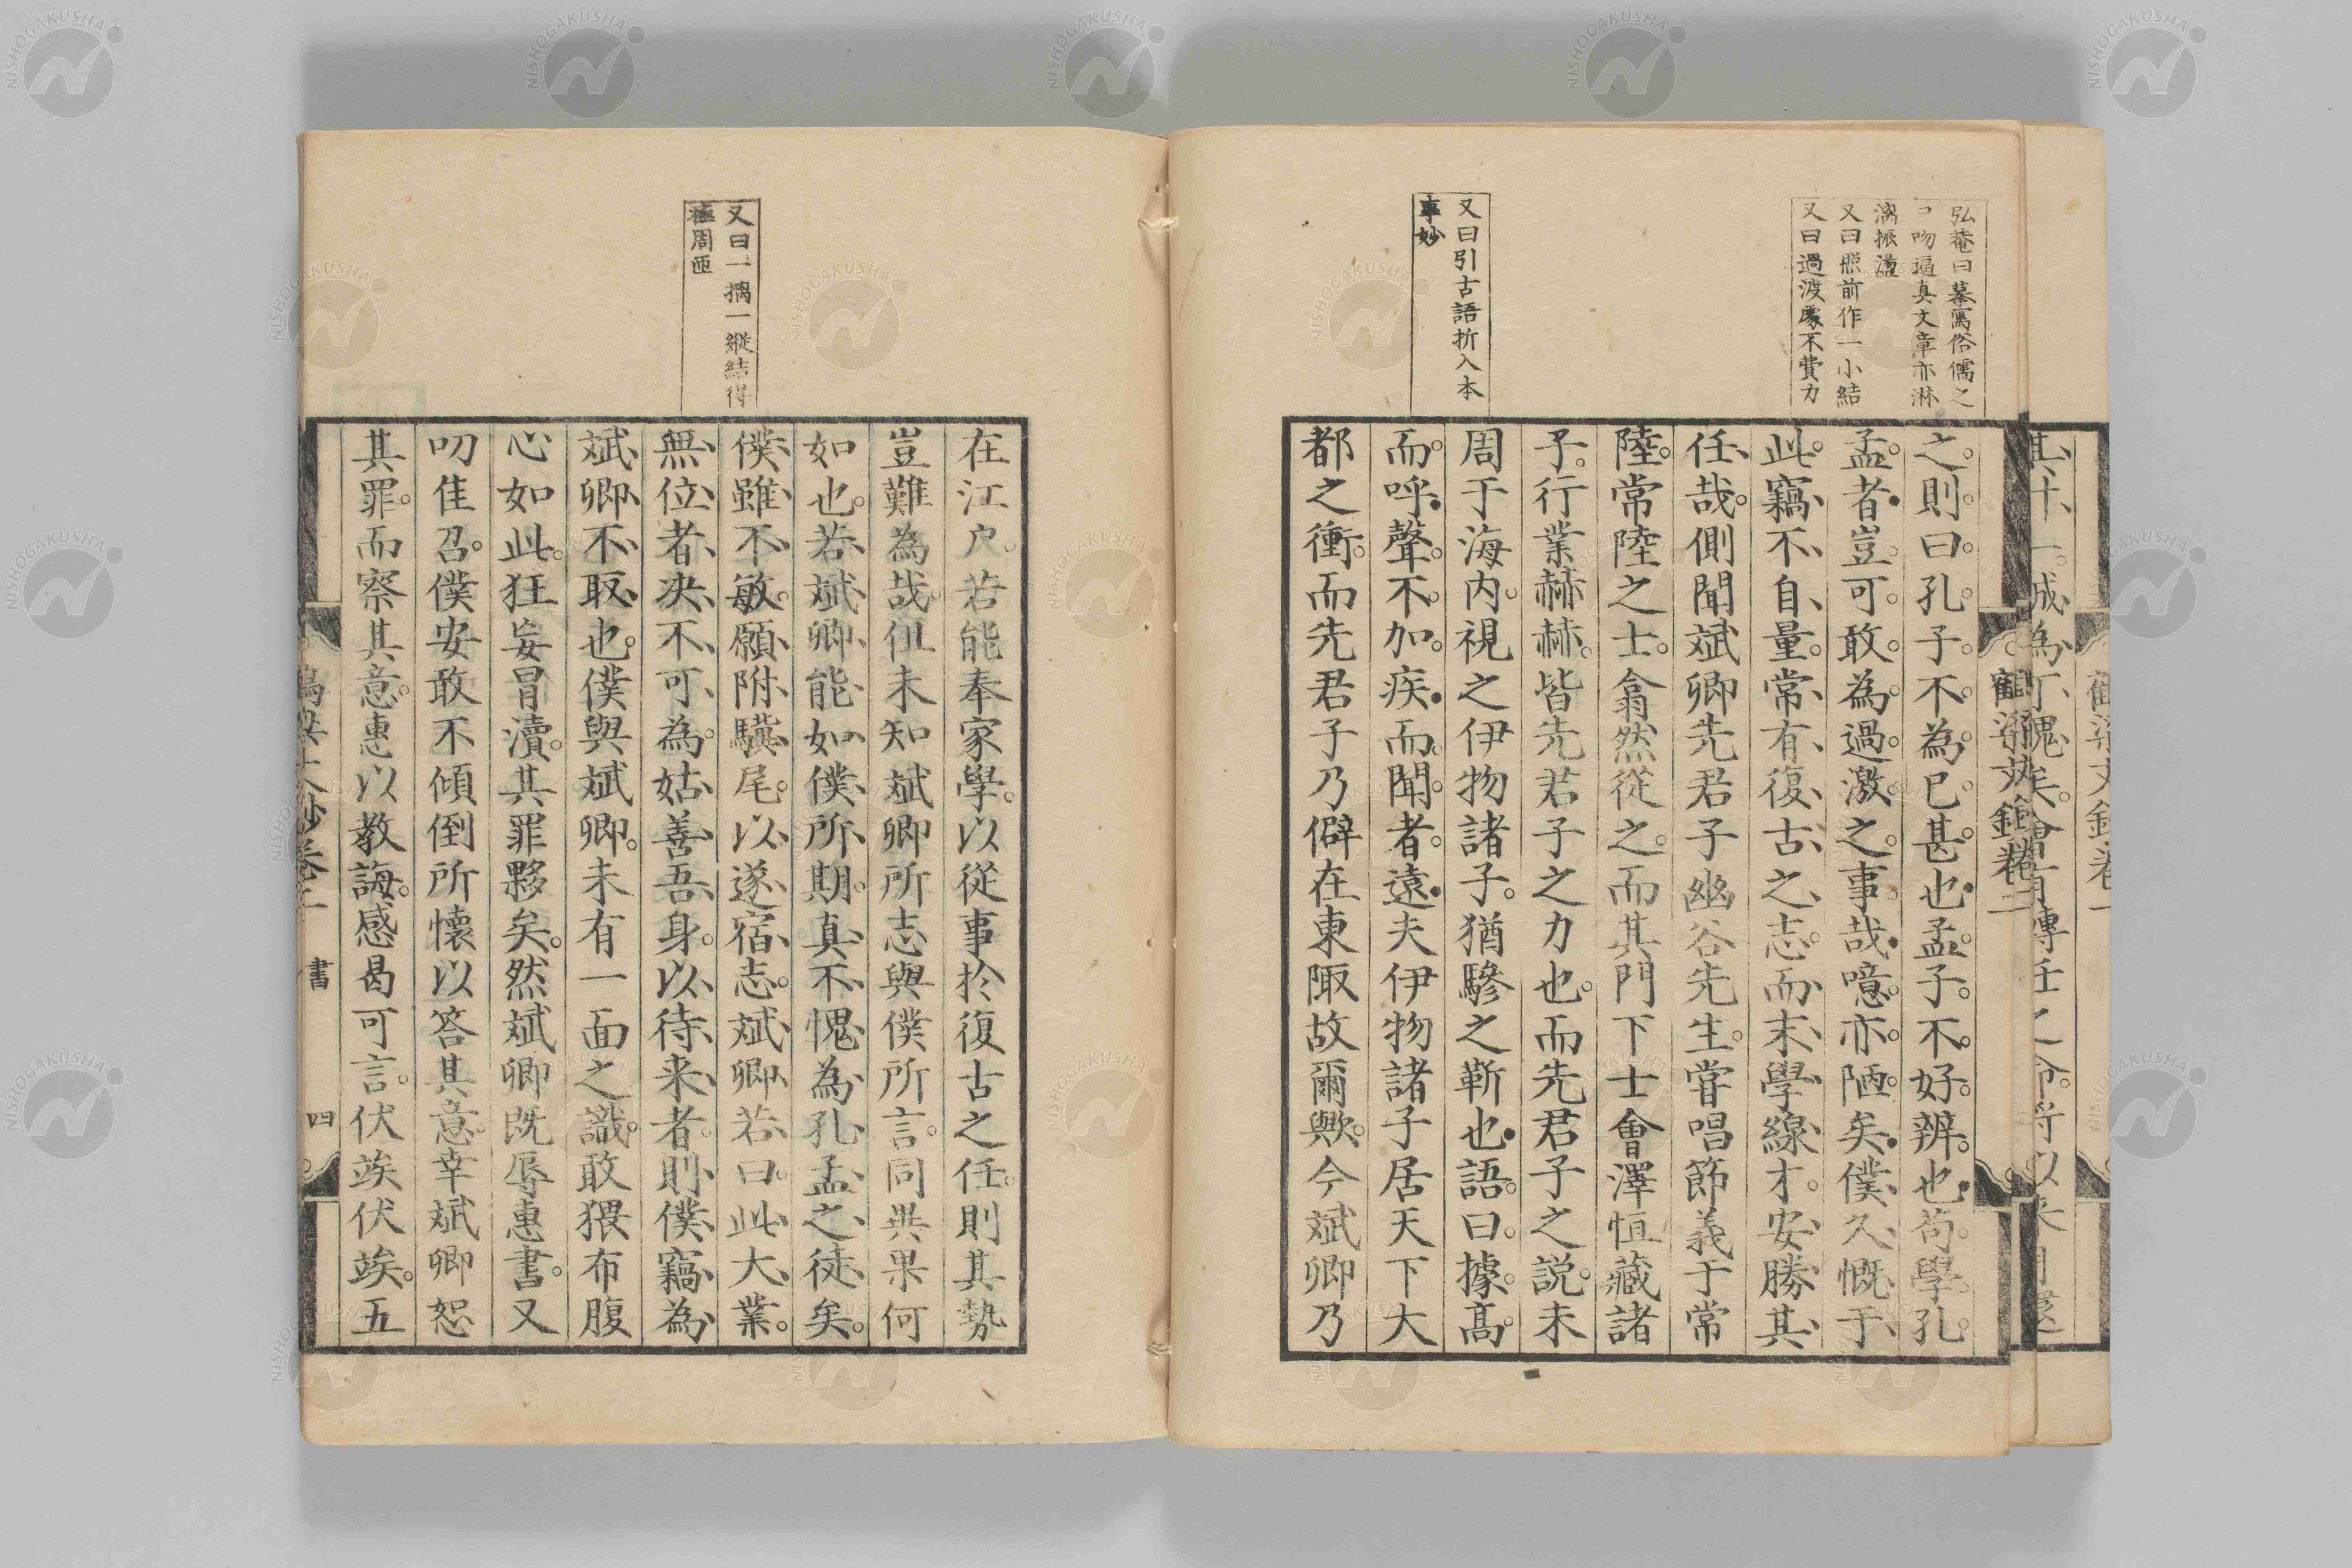 弘菴曰摹寫俗儒之
口吻逼真文章亦淋
漓振盪
又曰照前作一小結
又曰過渡處不費力
又曰引古語折入本
事妙
之則曰孔子不為已甚也孟子不好辨也苟學孔
孟者豈可敢為過激之事哉噫亦陋矣僕久慨于
此竊不自量常有復古之志而末學線才安勝其
任哉側聞斌卿先君子幽谷先生甞唱節義于常
陸常陸之士翕然從之而其門下士會澤恒藏諸
子行業赫赫皆先君子之力也而先君子之說未
周于海内視之伊物諸子猶驂之靳也語曰據高
而呼聲不加疾而聞者遠夫伊物諸子居天下大
都之衝而先君子乃僻在東陬故爾歟今斌卿乃
又曰一擒一縱結得
極周匝
在江户若能奉家學以從事於復古之任則其勢
豈難為哉但未知斌卿所志與僕所言同異果何
如也若斌卿能如僕所期真不愧為孔孟之徒矣
僕雖不敏願附驥尾以遂宿志斌卿若曰此大業
無位者决不可為姑善吾身以待来者則僕竊為
斌卿不取也僕與斌卿未有一面之識敢猥布腹
心如此狂妄冒瀆其罪夥矣然斌卿既辱惠書又
叨隹召僕安敢不傾倒所懷以答其意幸斌卿恕
其罪而察其意惠以教誨感曷可言伏竢伏竢五
書
四
NISHOGAKUSHA